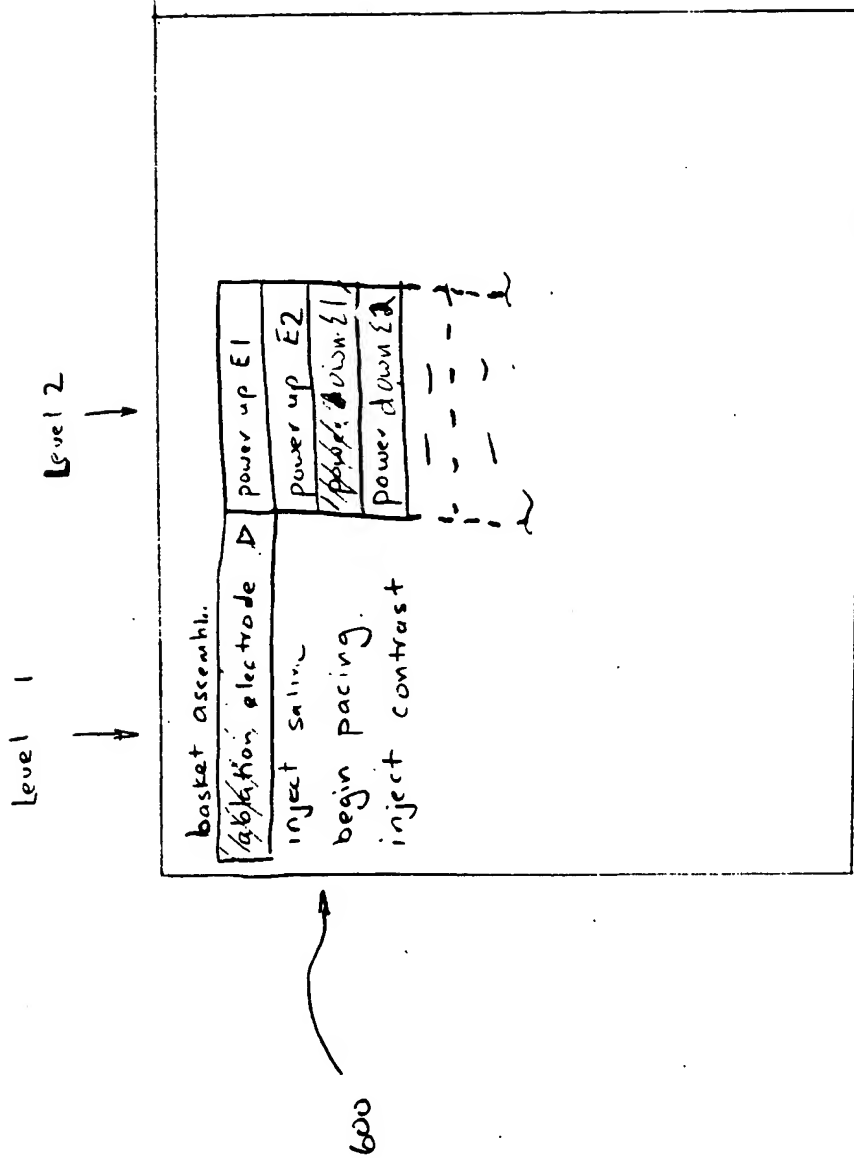 Level 1
Level 2
basket assembl..
ablation electrode ▷
inject saline
begin pacing.
inject contrast
power up E1
power up E2
power down E1
power down E2
600